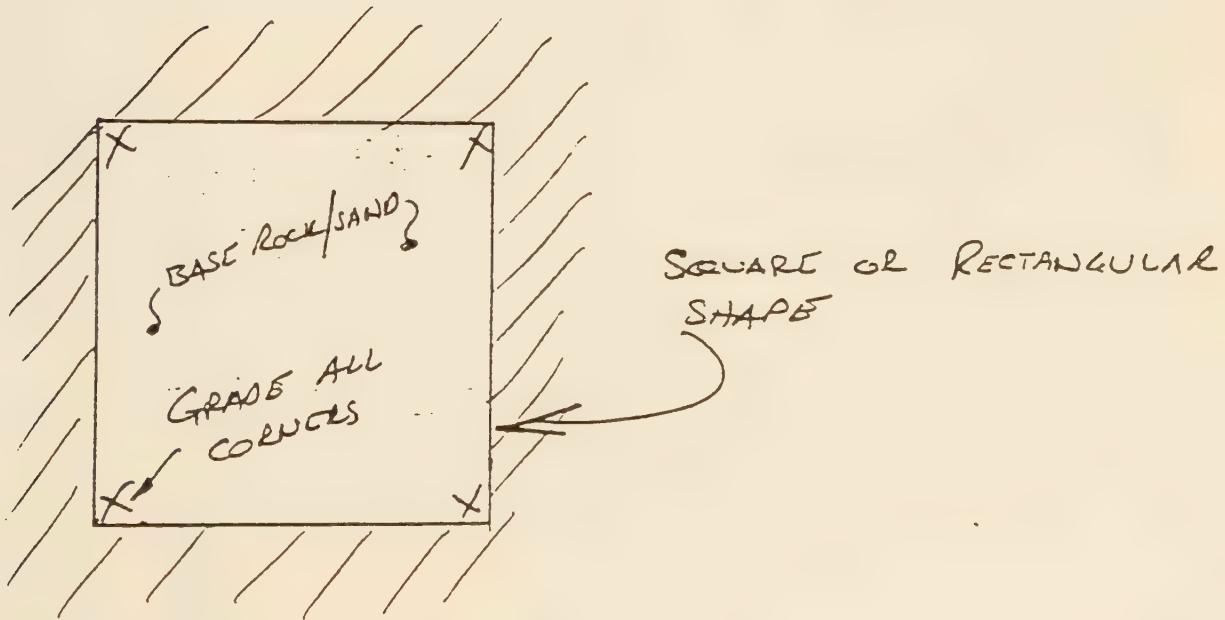 BASE ROCK/SAND
GRADE ALL
CORNERS
SQUARE OR RECTANGULAR
SHAPE